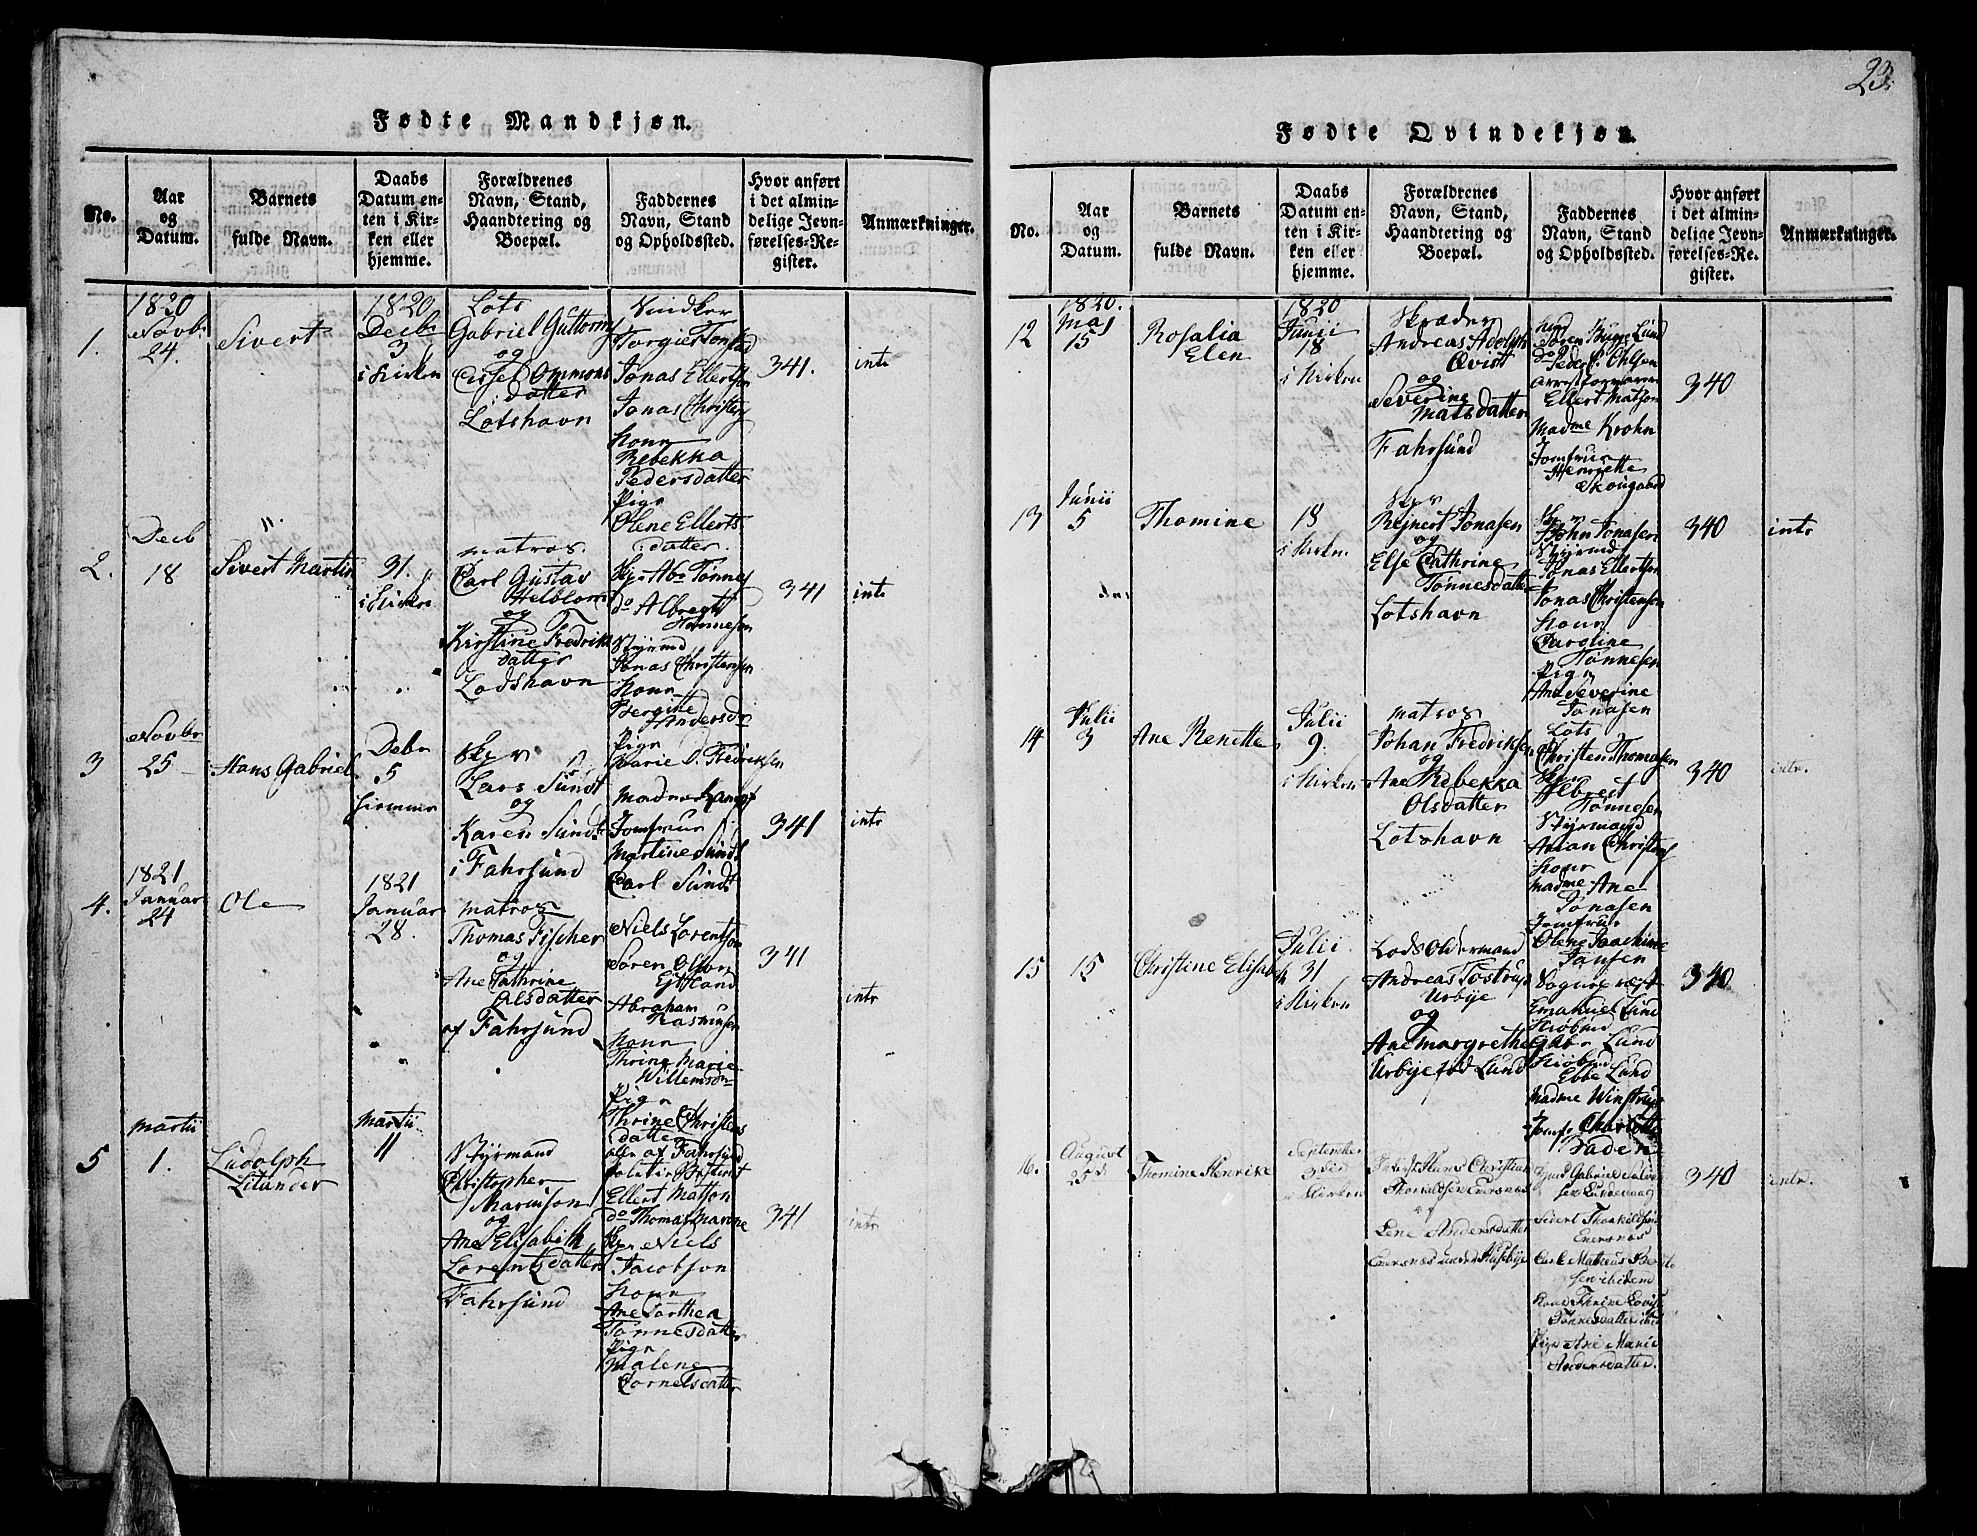 23.
Fødte Mandkjøn.
No.
Aar
og
Datum.
Barnets
fulde Navn.
Daabs
Datum en-
ten i Kir-
ken eller
hjemme.
Forældrenes
Navn, Stand,
Haandtering og
Boepæl.
Faddernes
Navn, Stand
og Opholdssted.
Hvor anført
i det almin-
delige Jevn-
førelses-Re-
gister.
Anmærkninger.
1.
1820
Novbr
24.
Sivert
1820
Decbr
3
i Kirken
Lots
Gabriel Guttorms
og
Cissel Ommons
datter
Lotshavn
Jonas Ellertsen
Jonas Christens
Konn
Rebekka
Pedersdatter
Pign
Olene Ellerts
datter.
341.
intr
2.
Decb
18
Sivert Martin
31.
i Kirken
matros
Carl Gustav
Helblom
og
Kirstine Fredriks
datter
Lodshavn
Skpr Abr Tønnes
do Albregt
Tønnesen
Styrmd
Jonas Christensen
Konn
Bergitte
Andersdr
Pign
Marie O. Fredriksen
341
intr
3
Novbr
25
Hans Gabriel
Debr
5
hjemme
Skpr
Lars Sundt
og
Karen Sundt
i Fahrsund
Jomfrue
Martine Sundt
Carl Sundt
341
intr
4.
1821
Januar
24
Ole
1821
Januar
28.
matros
Thomas Fischer
og
Ane Cathrine
Olsdatter
af Fahrsund
Niels Lorentsen
Søren Olsen
Abraham
Rasmusen
Konn
Thrine Marie
Willemsdr
Pign
Thrine Christens
datter
alle af Fahrsund
341
intr
5
martii
1.
Ludolph
Litander
martii
11
Styrmand
Christopher
Marinson
og
Ane Elisabith
Lorentzdatter
Fahrsund
Ellert Matson
do Thomas Marine
Skpr Niels
Jacobson
Konn
Ane Dorthea
Tønnesdatter
Pign
Malene
Cornelsdatter
341
intr
Fødte Qvindekjøn.
No.
Aar
og
Datum.
Barnets
fulde Navn.
Daabs
Datum en-
ten i Kir-
ken eller
hjemme.
Forældrenes
Navn, Stand,
Haandtering og
Boepæl.
Faddernes
Navn, Stand
og Opholdssted.
Hvor anført
i det almin-
delige Jevn-
førelses-Re-
gister.
Anmærkninger.
12
1820.
Maj
15
Rosalia
Elen
1820
Junii
18
i Kirken
Skræder
Andreas Adolph
Qvist
og
Severine
Matsdatter
Fahrsund
Søren Bugge Lund
do Peder C. Ohlsen
Arrestforvarer
Ellert Matson
Madme Krohn
Jomfrue
Henriette
Skougaard
340
13
Junii
5
Thomine
18
i Kirken
Skpr
Rejnert Jonasen
og
Else Cathrine
Tønnesdatter
Lotshavn
John Jonasen
Styrmd
Jonas Ellertsen
Jonas Christensen
Konn
Caroline
Tønnesen
Pign
Ane Severine
Jonasen
340
intr
14
Julii
3
Ane Renette
Julii
9.
i Kirken
matros
Johan Fredriksen
og
Ane Rebekka
Olsdatter
Lotshavn
Lots
Christen Thomasen
Skpr
Albrest
Tønnesen
Styrmand
Konn
Madme Ane
Jonasen
Jomfrue
Olene Joachime
Jansen
340
intr.
15
15
Christine Elisabeth
Julii
31
i Kirken
Lods Oldermand
Andreas Tostrup
Urbye
og
Ane Margrethe
Urbye fød Lund
Emanuel Lund
Kiøbmd
Gabr Lund
Kiøbmd
Ebbe Lund
Madme Winstrup
Jomfr Charlotte
Baden
340
16.
August
25d
Thomine Henrike
September
3die
i Kirken
Hans Christian
Thorkildsen Enersnæs
og
Lene Andersdatter
Enersnæs under Huseby
Sivert Thorkildsen
Enersnæs
Carl Mathias Bernt
sen ibidem
Kone Thrine Lovise
Tønnesdatter ibid
Pige Ane Marie
Andersdatter.
340
intr.